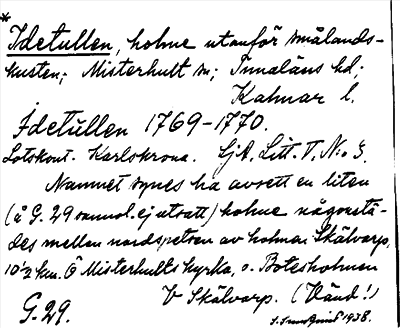 *
Idetullen, holme utanför smålands-
kusten; Misterhult sn; Tunaläns hd;
Kalmar l.
Idetullen 1769–1770.
Lotskont. Karlskrona. SjA. Litt. T. No 3.
Namnet synes ha avsett en liten
(å G. 29 sannol. ej utsatt) holme någonstä-
des mellan nordspetsen av holmen Skälvarp,
10½ km. Ö Misterhults kyrka, o. Botesholmen
V Skälvarp. (Vänd!)
G. 29. 1938.